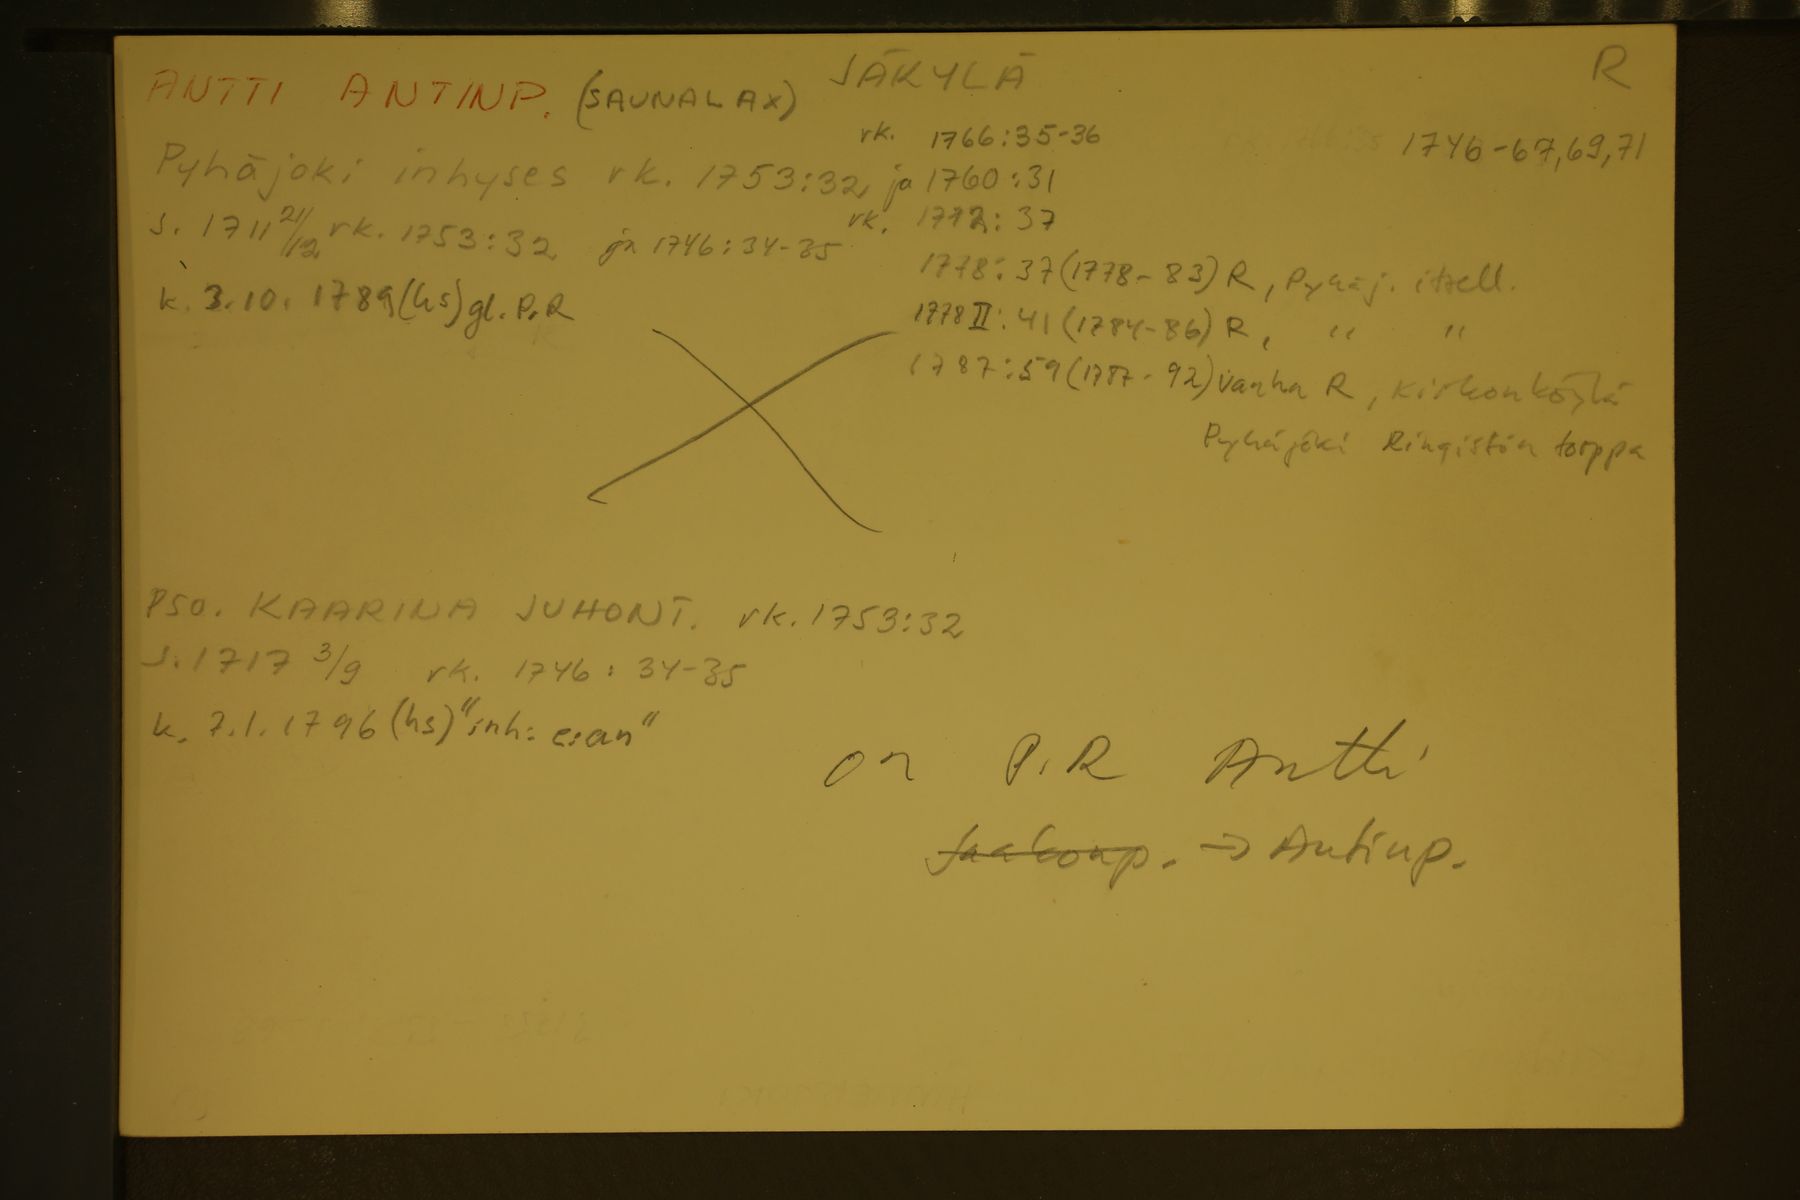 ANTTI ANTINP. (SAUNALAX) JÄKYLÄ R
rk. 1766:35-36 1746-67,69,71
Pyhäjoki inhyses rk. 1753:32, ja 1760:31
s. 1711 21/12 rk. 1753:32 ja 1746:34-35 rk. 1772:37
1778:37 (1778-83) R, Pyhäj. itsell.
k. 3.10.1789 (hs) gl. P.R
1778 II:41 (1784-86) R, " "
1787:59 (1787-92) vanha R, kirkonkÿlä
Pyhäjoki Ringistön torppa
PSO. KAARINA JUHONT. rk. 1753:32
s. 1717 3/9 rk. 1746:34-35
k. 7.1.1796 (hs) "inh: e:an"
on P.R Antti
Jaakonp. → Antinp.